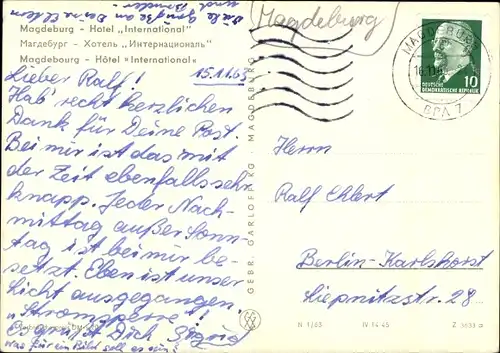 Viele Grüße an Deine Eltern
und Bruder.
Magdeburg
Magdeburg - Hotel „International"
Магдебург - Хотель „Интернациональ"
Magdebourg - Hôtel «International»
Lieber Ralf! 15.11.63
Hab' recht herzlichen
Dank für Deine Post.
Bei mir ist das mit
der Zeit ebenfalls sehr
knapp. Jeder Nach-
mittag außer Sonn-
tag ist bei mir be-
setzt. Eben ist unser
Licht ausgegangen.
„Stromsperre"!
Es grüßt Dich Sigrid
was für ein Bild soll es sein?
GEBR. GARLOFF KG · MAGDEBURG
MAGDEBURG
BPA 7
10
DEUTSCHE
DEMOKRATISCHE REPUBLIK
Herrn
Ralf Ehlert
Berlin-Karlshorst
Liepnitzstr. 28
N 1/63 IV 14 45